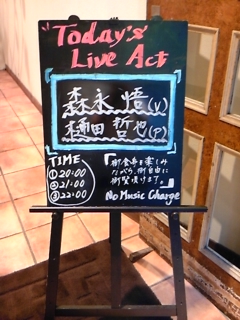 "Today's"
Live Act
森永 悟(V)
樋田 哲也(P)
TIME
①20:00
②21:00
③22:00
「御食事を楽しみ
ながら、御自由に
御覧頂けます。」
No Music Charge